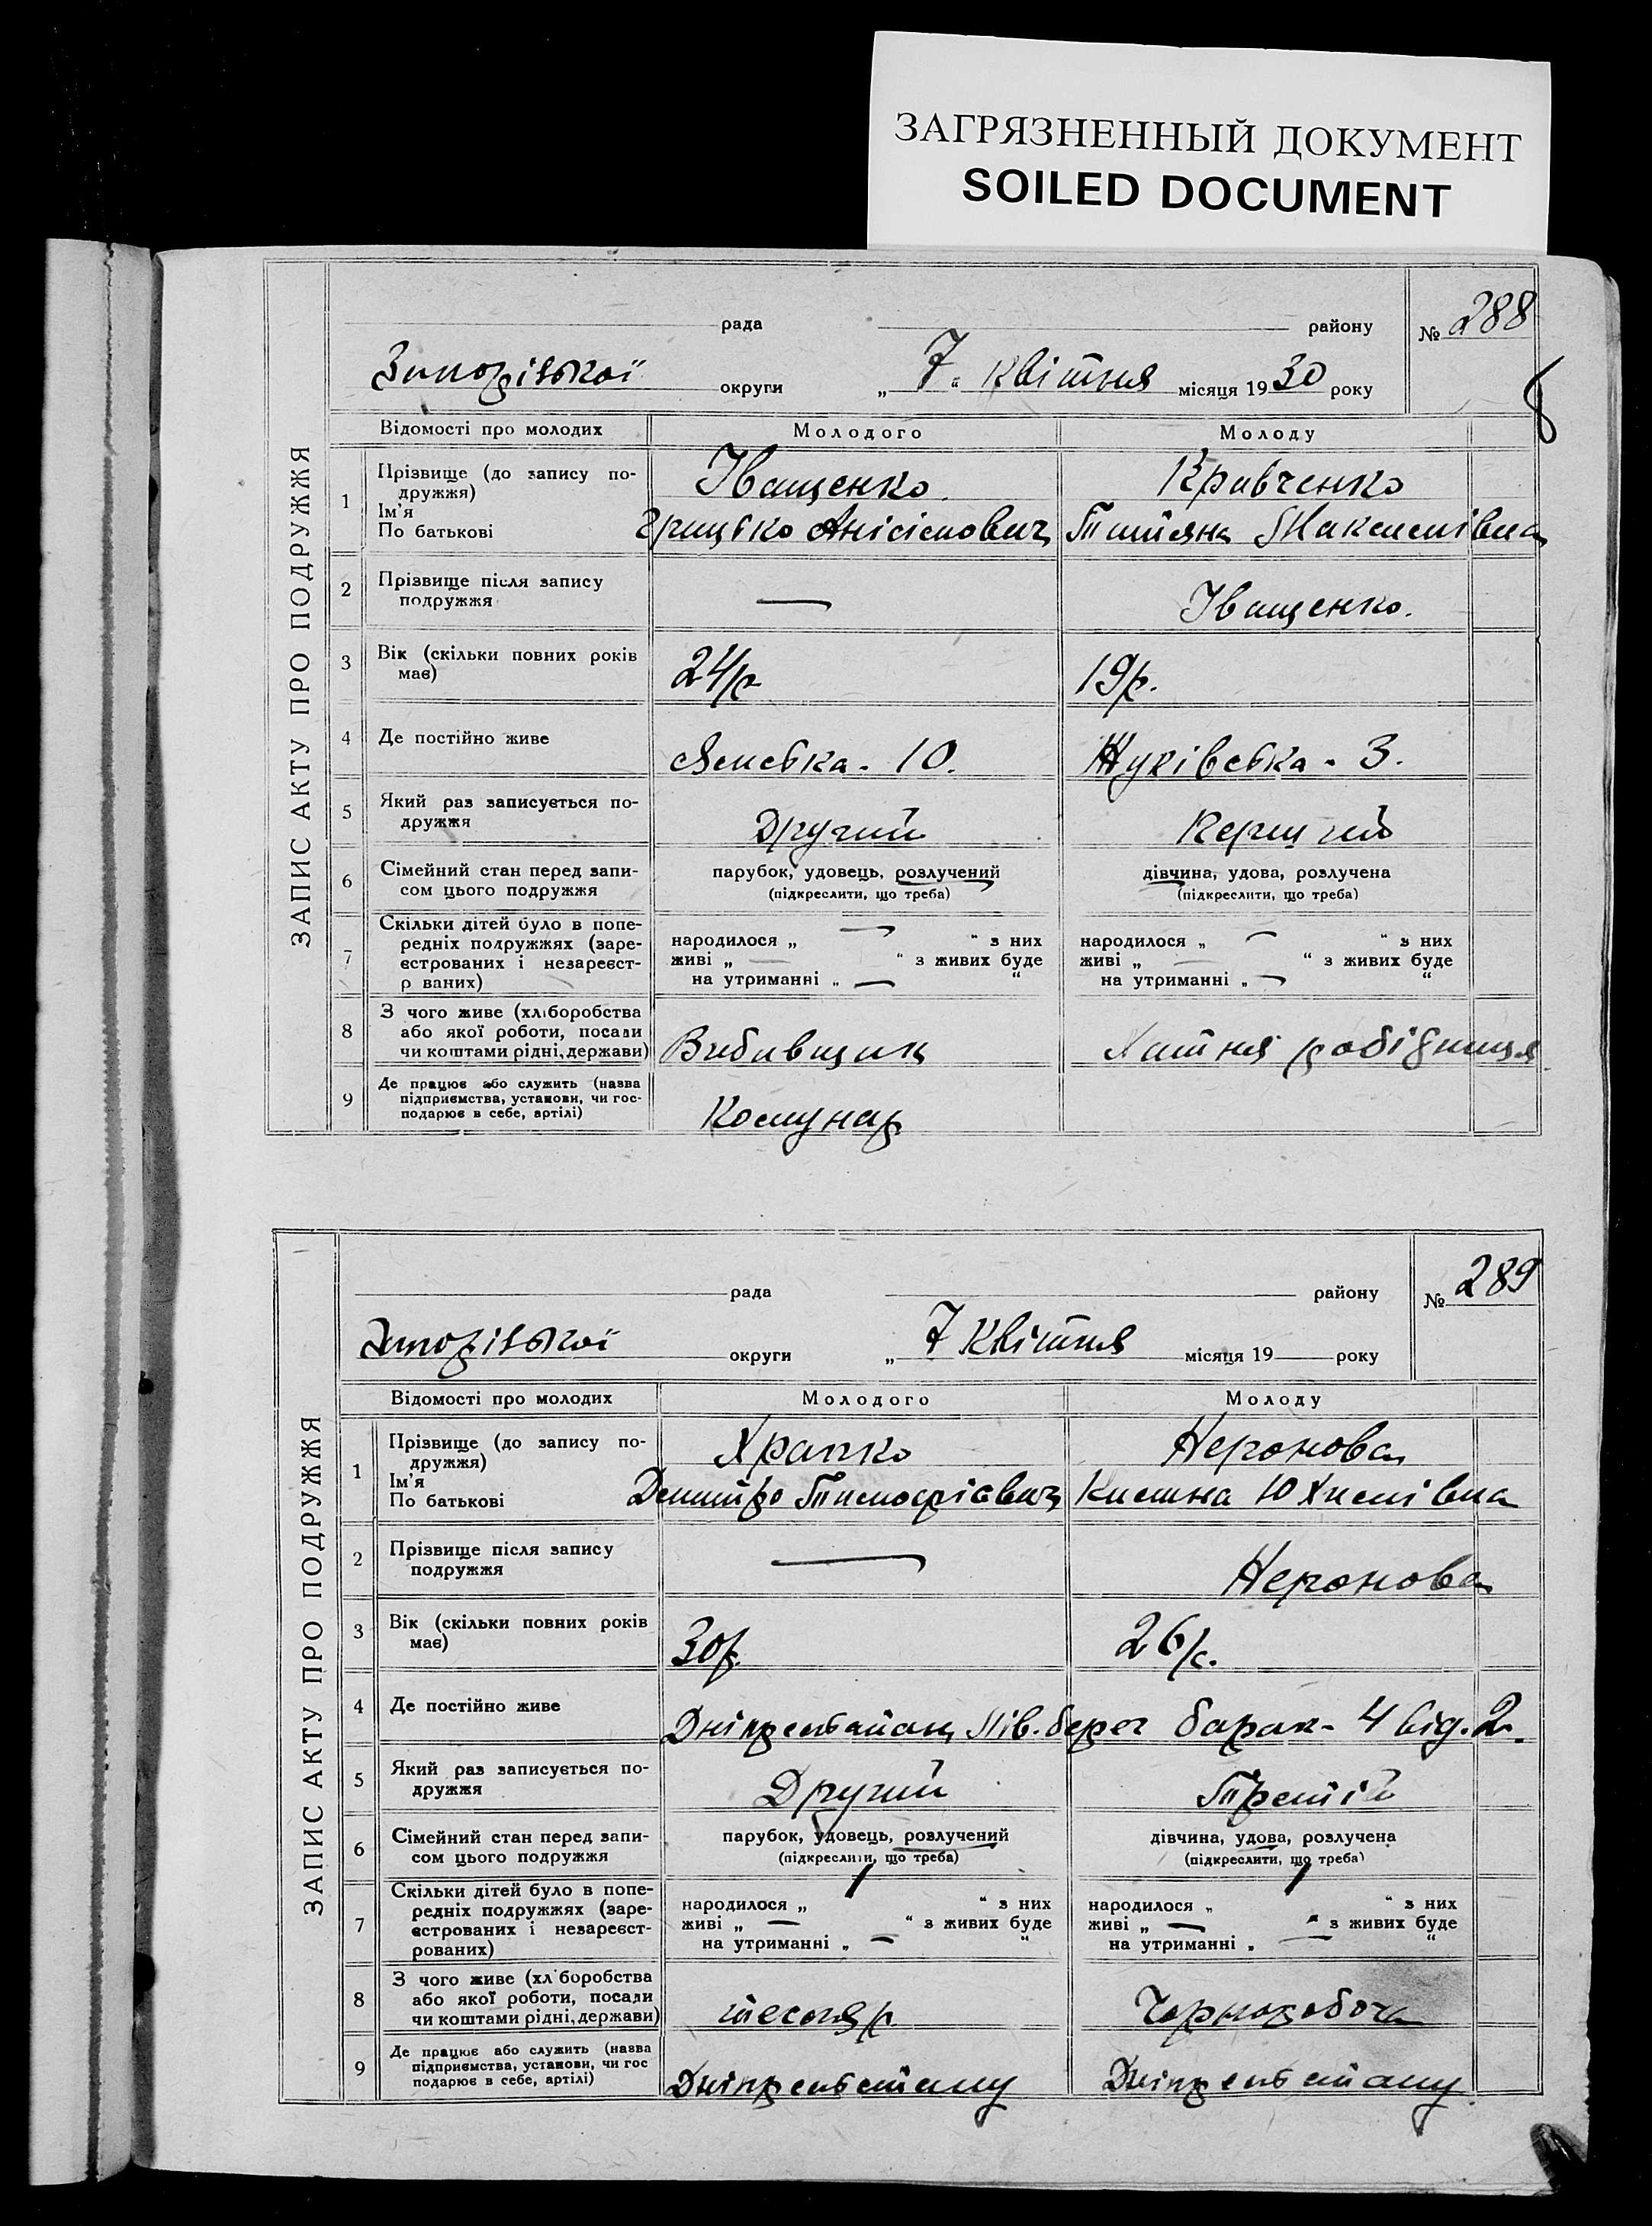 ЗАГРЯЗНЕННЫЙ ДОКУМЕНТ
SOILED DOCUMENT
ЗАПИС АКТУ ПРО ПОДРУЖЖЯ
рада
району
№ 288
Запорізької округи „7“ квітня місяця 1930 року
8
Відомості про молодих
Молодого
Молоду
1
Прізвище (до запису по-
дружжя)
Ім'я
По батькові
Іващенко
Грицько Анісімович
Кравченко
Татіяна Максимівна
2
Прізвище після запису
подружжя
—
Іващенко.
3
Вік (скільки повних років
має)
24 р
19 р.
4
Де постійно живе
Ямська - 10.
Жуківська - 3.
5
Який раз записується по-
дружжя
Другий
Перший
6
Сімейний стан перед запи-
сом цього подружжя
парубок, удовець, розлучений
(підкреслити, що треба)
дівчина, удова, розлучена
(підкреслити, що треба)
7
Скільки дітей було в попе-
редніх подружжях (заре-
єстрованих і незареєст-
р ваних)
народилося „ — “ з них
живі „ — “ з живих буде
на утриманні „ — “
народилося „ — “ з них
живі „ — “ з живих буде
на утриманні „ — “
8
З чого живе (хліборобства
або якої роботи, посади
чи коштами рідні, держави)
Вибивщик
Хатня робідниця
9
Де працює або служить (назва
підприємства, установи, чи гос-
подарює в себе, артілі)
Комунар
ЗАПИС АКТУ ПРО ПОДРУЖЖЯ
рада
району
№ 289
Запорізької округи „ 7 Квітня місяця 19 року
Відомості про молодих
Молодого
Молоду
1
Прізвище (до запису по-
дружжя)
Ім'я
По батькові
Храпко
Дмитро Тимофієвич
Неронова
Юхимівна
2
Прізвище після запису
подружжя
—
Неронова
3
Вік (скільки повних років
має)
30 р.
26 р.
4
Де постійно живе
Дніпрельстан Лів. берег барак - 4 від. 2.
5
Який раз записується по-
дружжя
Другий
Третій
6
Сімейний стан перед запи-
сом цього подружжя
парубок, удовець, розлучений
(підкреслити, що треба)
дівчина, удова, розлучена
(підкреслити, що треба)
7
Скільки дітей було в попе-
редніх подружжях (заре-
єстрованих і незареєст-
рованих)
народилося „ 1 “ з них
живі „ — “ з живих буде
на утриманні „ — “
народилося „ 1 “ з них
живі „ — “ з живих буде
на утриманні „ — “
8
З чого живе (хл боробства
або якої роботи, посади
чи коштами рідні, держави)
тесляр
Чорноробоча
9
Де працює або служить (назва
підприємства, установи, чи гос
подарює в себе, артілі)
Дніпрельстану
Дніпрельстану